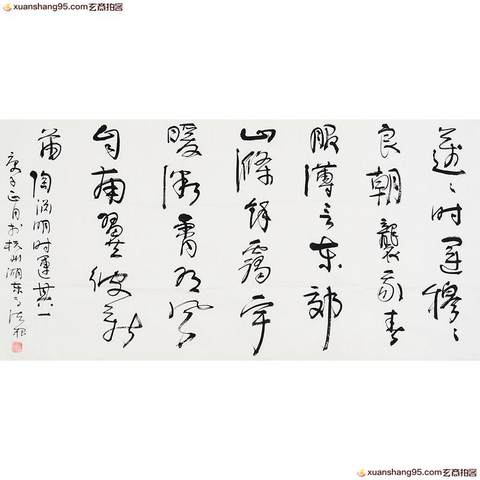 xuanshang95.com玄商拍客
邁〻时運穆〻
良朝襲我春
服薄言东郊
山滌餘靄宇
暧微霄有风
自南翼彼新
苗 陶渊明时運其一
庚子正月於杭州湖东
xuanshang95.com玄商拍客